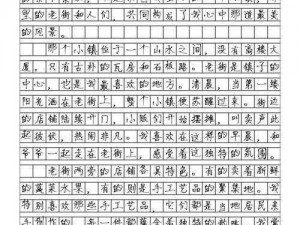 里的老街和人们，共同构成了我心中那道最美
的风景。
那个小镇位于一个山水之间，没有高楼大
厦，只有古朴的瓦房和石板路。老街是镇子的
中心，也是我最喜欢的地方。清晨，当第一缕
阳光洒在老街上，整个小镇便苏醒过来。街边
的店铺陆续开门，小贩们开始摆摊，叫卖声此
起彼伏，热闹非凡。我喜欢在这样的早晨，和
爷爷一起走在老街上，感受着这独特的氛围。
老街两旁的店铺各具特色。有的卖着新鲜
的蔬菜水果，有的则是手工艺品的聚集地。我
特别喜欢那些手工艺品，它们都是当地居民亲
手制作的，每一件都蕴含着独特的